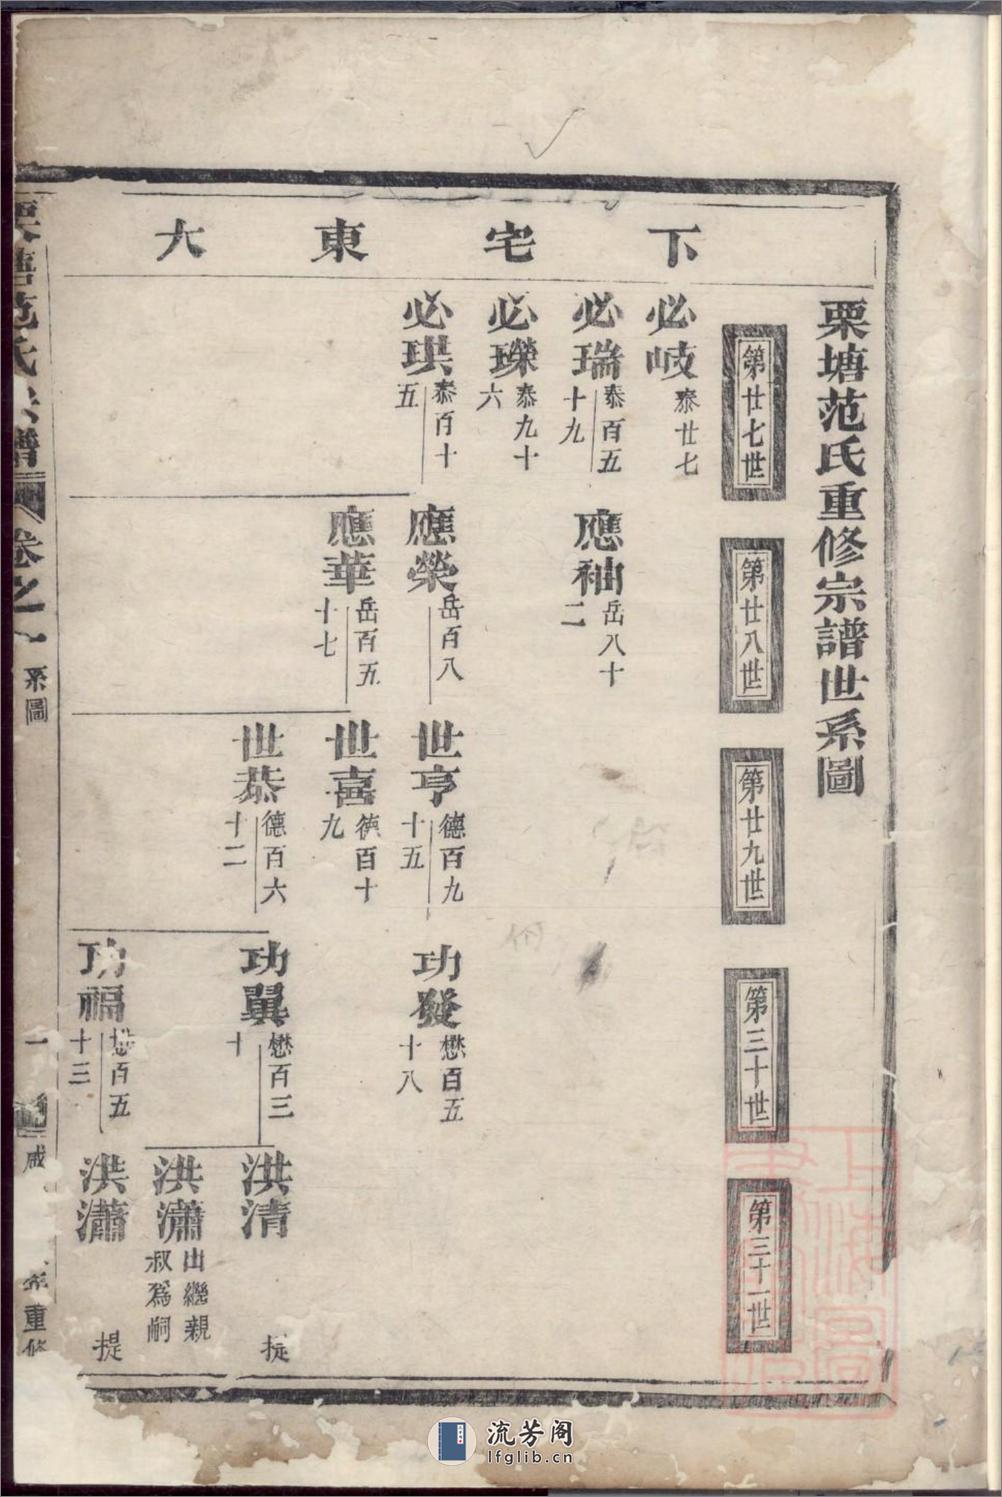 栗塘范氏重修宗譜世系圖
下宅東大
第廿七世
第廿八世
第廿九世
第三十世
第三十一世
必岐 泰廿七
必瑞 泰百五十九
必瓅 泰九十六
必琪 泰百十五
應袖 岳八十二
應榮 岳百八
應華 岳百五十七
世亨 德百九十五
世喜 德百十九
世恭 德百六十二
功發 懋百五十八
功翼 懋百三十
功福 懋百五十三
洪清 提
洪瀟 出繼親叔爲嗣
洪瀟 提
栗塘范氏宗譜 卷之一 系圖 一 咸 年重修
流芳阁
lfglib.cn